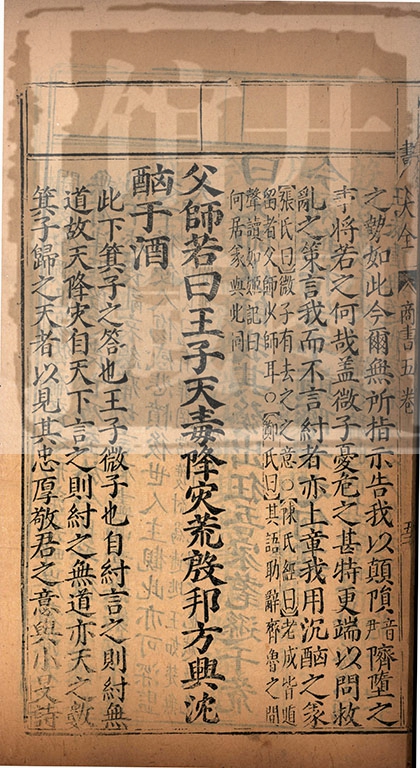 書大全 商書五卷
之勢如此今爾無所指示告我以顛隕音尹隮墮之
事將若之何哉蓋微子憂危之甚特更端以問救
亂之策言我而不言紂者亦上章我用沉酗之義
張氏曰微子有去之之意○陳氏經曰老成皆遁
留者父師少師耳○鄭氏曰其語助辭齊魯之間
聲讀如姬記曰
何居義與此同
父師若曰王子天毒降灾荒殷邦方興沈
酗于酒
此下箕子之答也王子微子也自紂言之則紂無
道故天降灾自天下言之則紂之無道亦天之數
箕子歸之天者以見其忠厚敬君之意與小旻詩